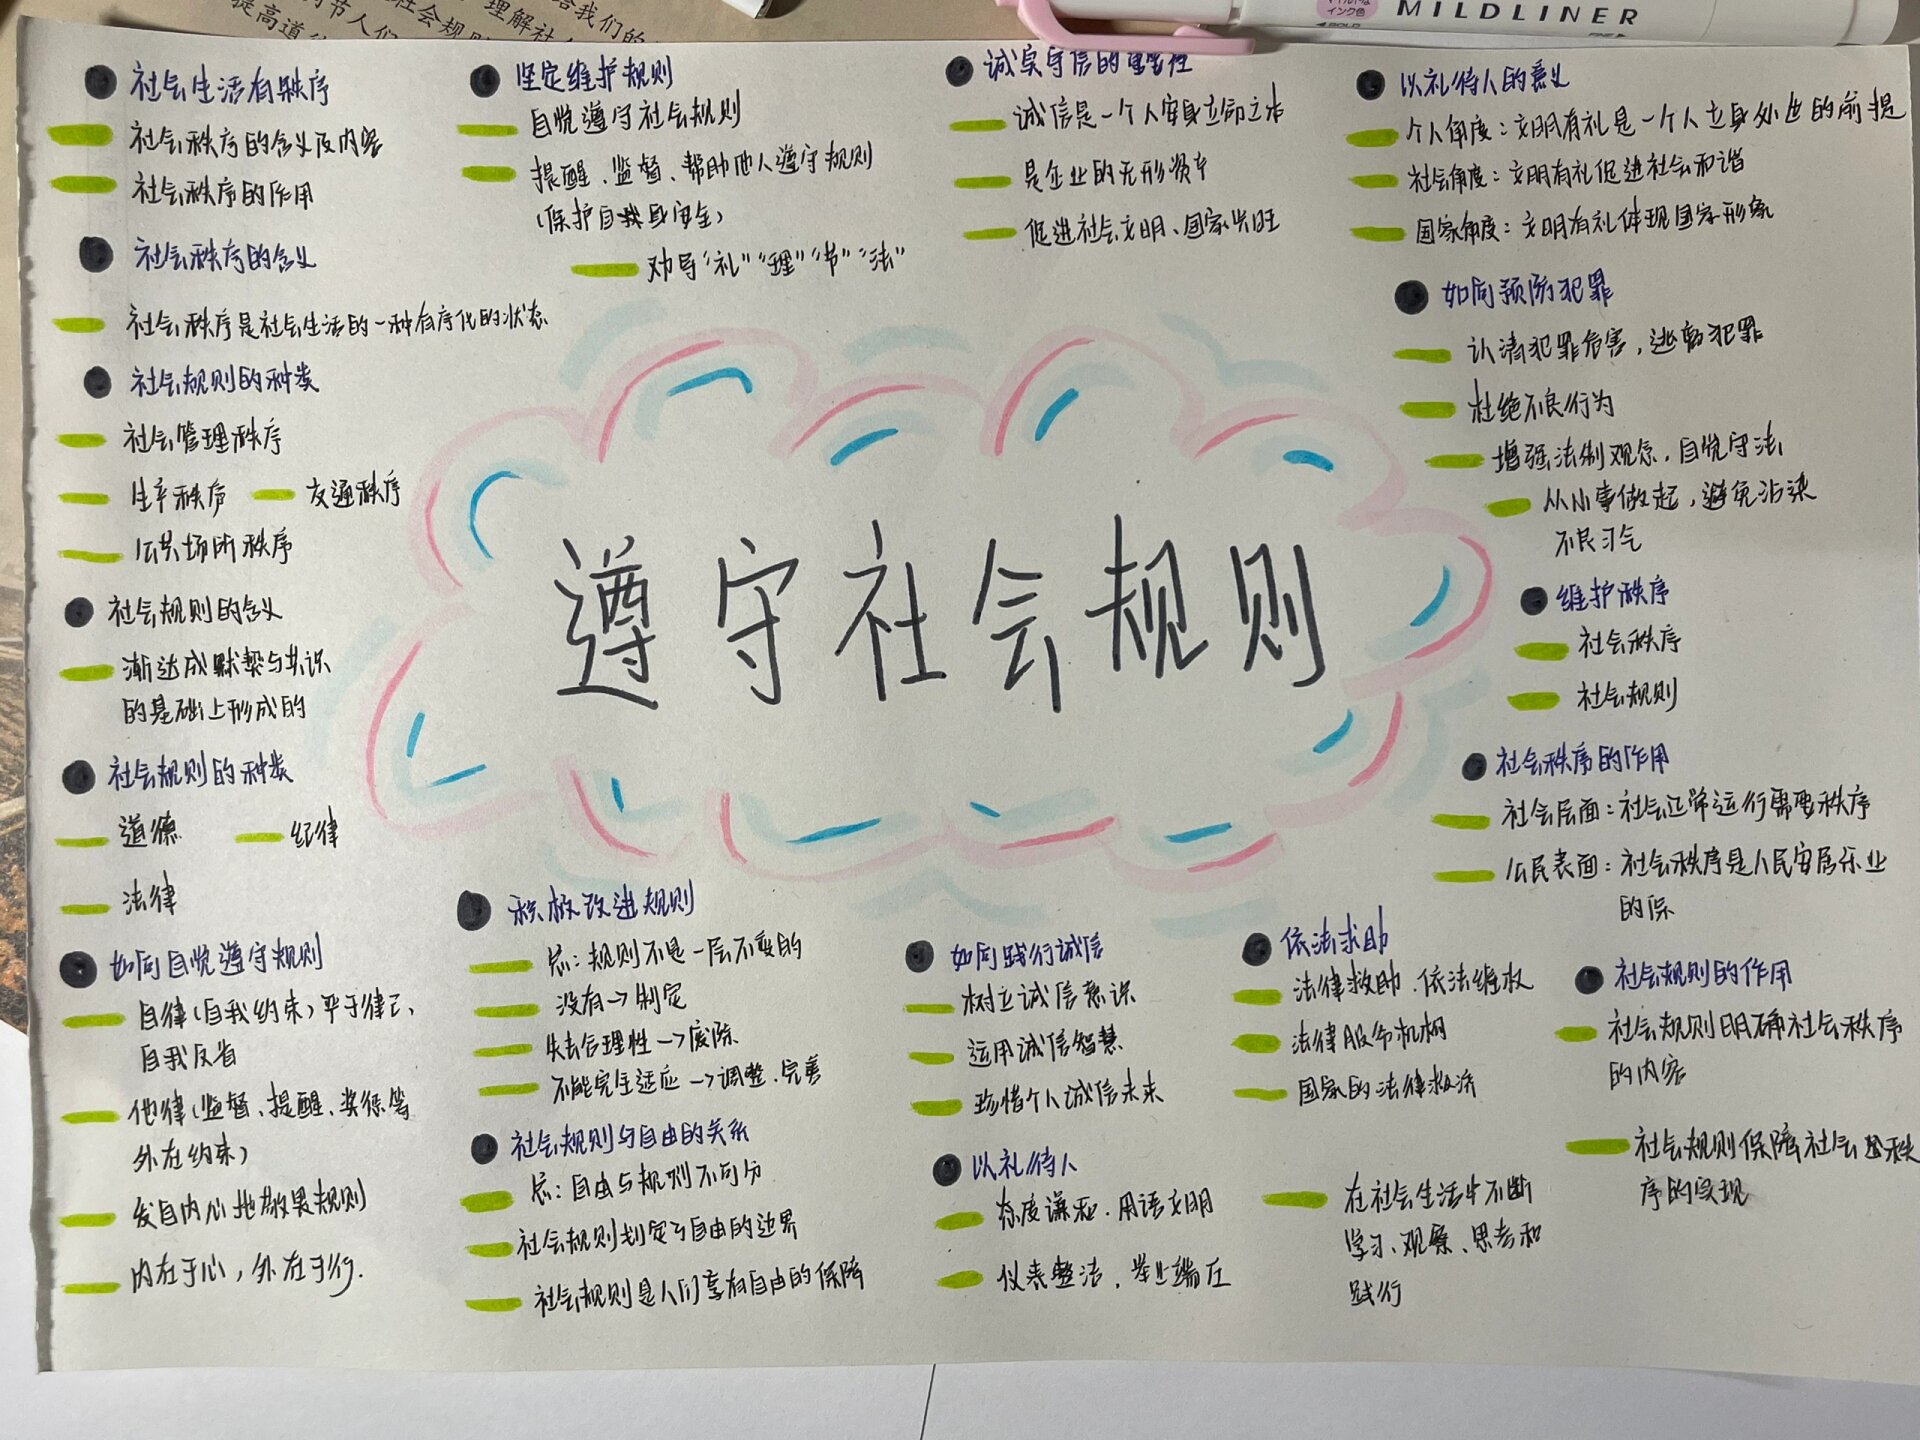 提高道
节人们
社会规则
理解社
给我们的
MILDLINER
マイルドな
インク色
BOLD
社会生活有秩序
社会秩序的含义及内容
社会秩序的作用
社会秩序的含义
社会秩序是社会生活的一种有序化的状态
社会规则的种类
社会管理秩序
生产秩序 交通秩序
公共场所秩序
社会规则的含义
渐达成默契与共识
的基础上形成的
社会规则的种类
道德 纪律
法律
如何自觉遵守规则
自律(自我约束)平于律己、
自我反省
他律(监督、提醒、奖惩等
外在约束)
发自内心地敬畏规则
内在于心，外在于行.
坚定维护规则
自觉遵守社会规则
提醒、监督、帮助他人遵守规则
(保护自我身安全)
劝导“礼”“理”“节”“法”
遵守社会规则
积极改进规则
总：规则不是一层不变的
没有→制定
失去合理性→废除
不能完全适应→调整、完善
社会规则与自由的关系
总：自由与规则不可分
社会规则划定了自由的边界
社会规则是人们享有自由的保障
诚实守信的重要性
诚信是一个人安身立命之本
是企业的无形资产
促进社会文明、国家兴旺
如何践行诚信
树立诚信意识
运用诚信智慧
珍惜个人诚信未来
以礼待人
态度谦和、用语文明
仪表整洁，举止端庄
依法求助
法律救助、依法维权
法律服务机构
国家的法律救济
在社会生活中不断
学习、观察、思考和
践行
以礼待人的意义
个人角度：文明有礼是一个人立身处世的前提
社会角度：文明有礼促进社会和谐
国家角度：文明有礼体现国家形象
如何预防犯罪
认清犯罪危害，远离犯罪
杜绝不良行为
增强法制观念，自觉守法
从小事做起，避免沾染
不良习气
维护秩序
社会秩序
社会规则
社会秩序的作用
社会层面：社会正常运行需要秩序
公民表面：社会秩序是人民安居乐业
的保
社会规则的作用
社会规则明确社会秩序
的内容
社会规则保障社会秩
序的实现